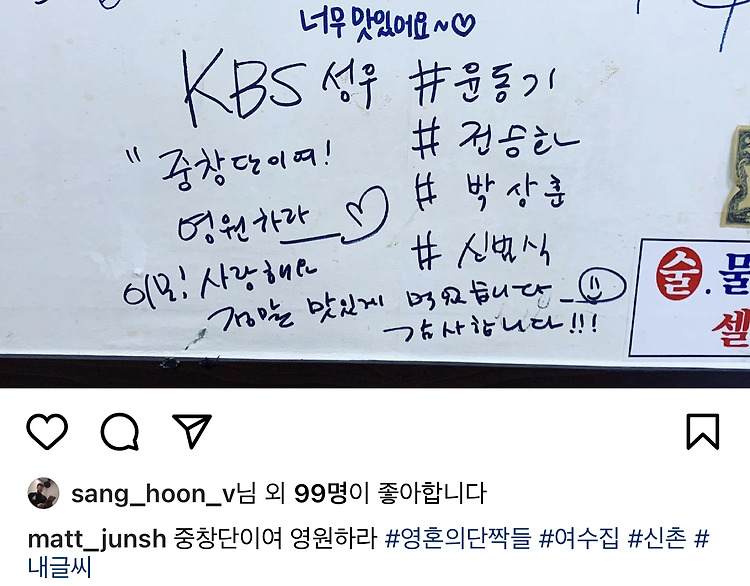 너무 맛있어요~♡
KBS 성우 #윤동기
#전승화
"중창단이여! #박상훈
영원하라 ♡
#신범식
이모! 사랑해요
정말 맛있게 먹었습니다
감사합니다!!!
술.물
셀
sang_hoon_v님 외 99명이 좋아합니다
matt_junsh 중창단이여 영원하라 #영혼의단짝들 #여수집 #신촌 #
내글씨